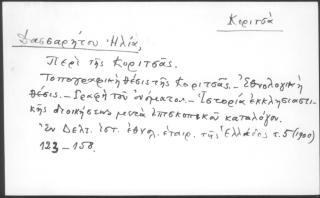 Κοριτσά
Δασσαρήτου Ηλία,
Περί της Κοριτσάς.
Τοπογραφική θέσις της Κοριτσάς. - Εθνολογική
θέσις. - Γραφή του ονόματος. - Ιστορία εκκλησιαστι-
κής διοικήσεως μετά επισκοπικού καταλόγου.
Εν Δελτ. ιστ. εθνολ. εταιρ. της Ελλάδος τ. 5 (1900)
123 - 158.